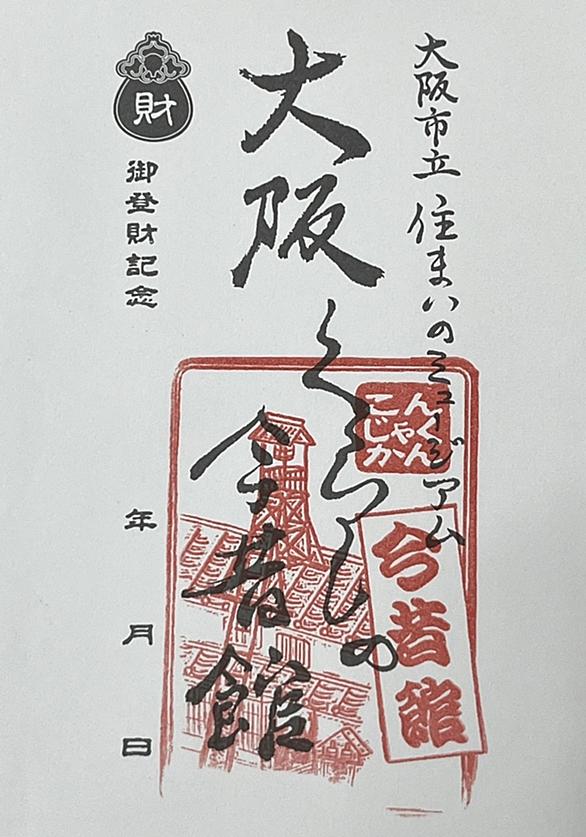 大阪市立 住まいのミュージアム
大阪くらしの
今昔館
こんじゃくかん
今昔館
財
御登財記念
年 月 日